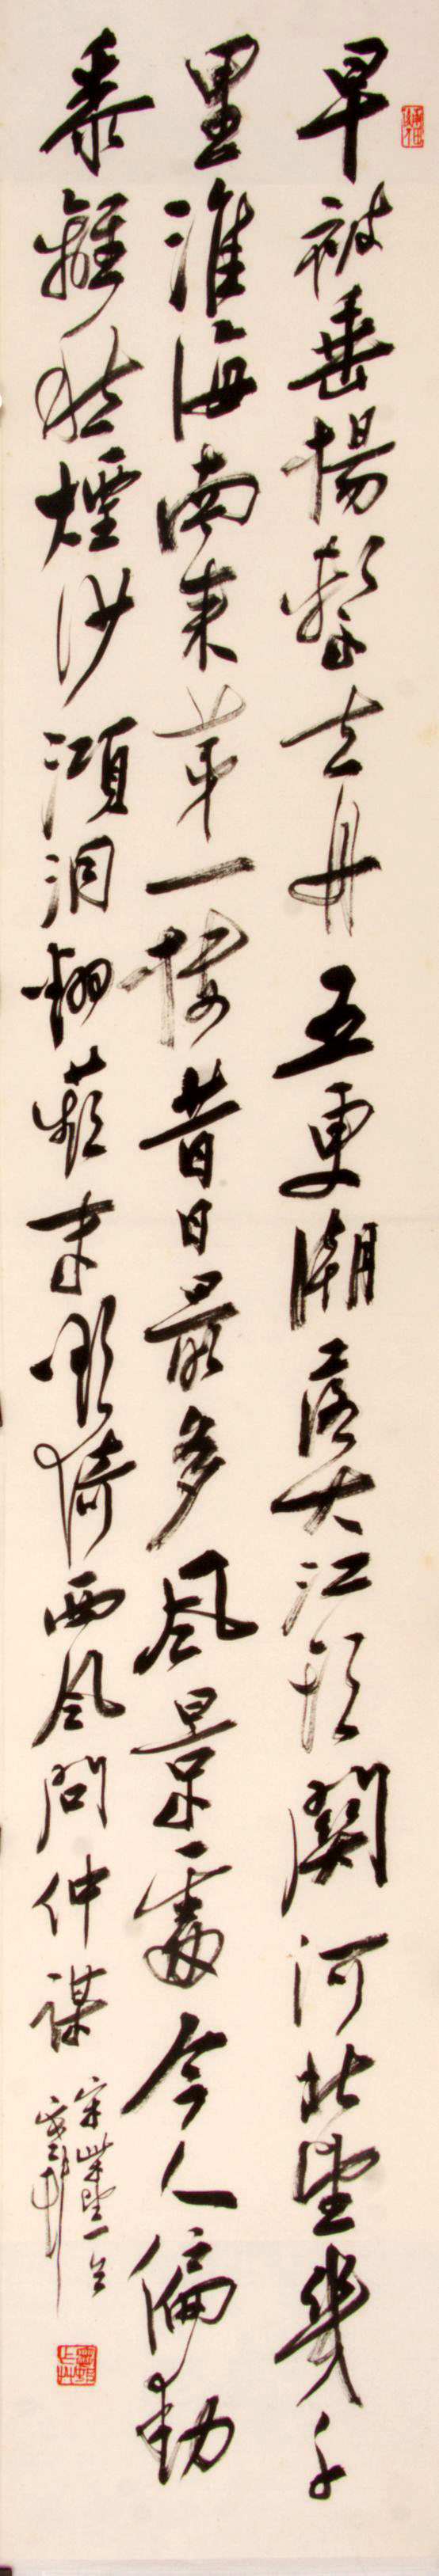 早被垂楊繫去舟五更潮落大江頭關河北望幾千
里淮海南來第一樓昔日最多風景處今人偏動
黍離愁煙沙澒洞翻蘋末欲倚西風問仲謀
宋柴望一首